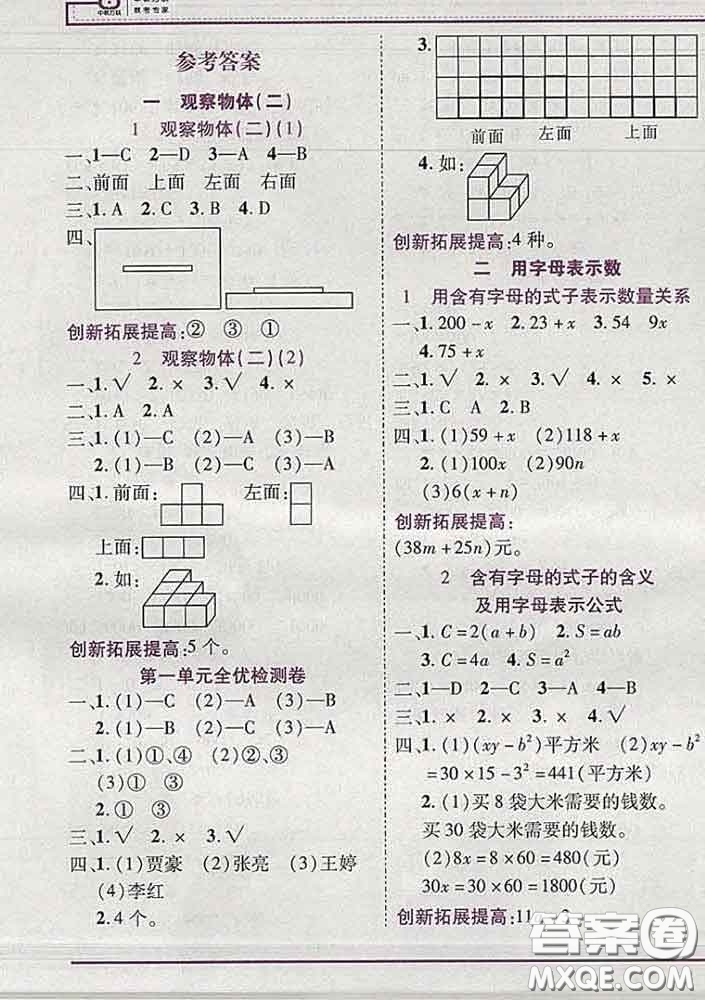 中教万联
教考专家
参考答案
一 观察物体(二)
1 观察物体(二)(1)
一、1—C 2—D 3—A 4—B
二、前面 上面 左面 右面
三、1. A 2. C 3. B 4. D
四、
创新拓展提高:② ③ ①
2 观察物体(二)(2)
一、1. √ 2. × 3. √ 4. ×
二、1. A 2. A
三、1. (1)—C (2)—A (3)—B
2. (1)—B (2)—C (3)—A
四、1. 前面: 左面:
上面:
2. 如:
创新拓展提高:5 个。
第一单元全优检测卷
一、1. (1)—C (2)—A (3)—B
2. (1)—B (2)—C (3)—A
二、1. (1)①、④ (2)②、③
(3)① ③
2. ① ③
三、1. √ 2. × 3. √
四、1. (1)贾豪 (2)张亮 (3)王婷
(4)李红
2. 4 个。
3.
前面 左面 上面
4. 如:
创新拓展提高:4 种。
二 用字母表示数
1 用含有字母的式子表示数量关系
一、1. 200 - x 2. 23 + x 3. 54 9x
4. 75 + x
二、1. √ 2. √ 3. × 4. × 5. ×
三、1. C A 2. B
四、1. (1)59 + x (2)118 + x
2. (1)100x (2)90n
(3)6(x + n)
创新拓展提高:
(38m + 25n)元。
2 含有字母的式子的含义
及用字母表示公式
一、1. C = 2(a + b) 2. S = ab
3. C = 4a 4. S = a²
二、1—D 2—C 3—B 4—A
三、1. × 2. × 3. √ 4. √
四、1. (1)(xy - b²)平方米 (2)xy - b²
= 30 × 15 - 3² = 441(平方米)
2. (1)买 8 袋大米需要的钱数。
买 30 袋大米需要的钱数。
(2)8x = 8 × 60 = 480(元)
30x = 30 × 60 = 1800(元)
创新拓展提高:11
答案圈
MXQE.COM